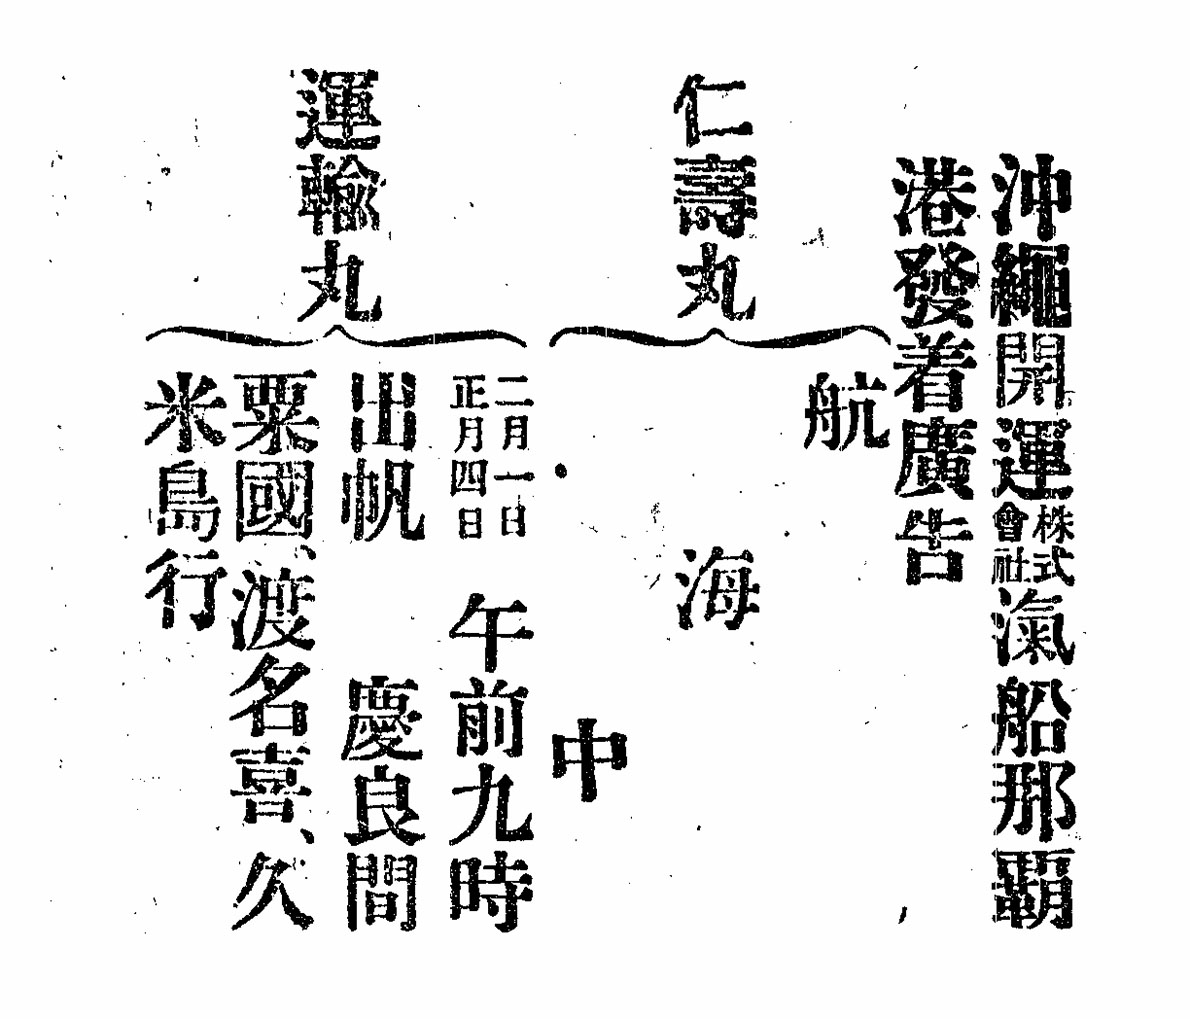 沖繩開運株式會社滊船那覇
港發着廣告
仁壽丸
航
海
中
運輸丸
二月一日
正月四日
午前九時
出帆 慶良間
粟國、渡名喜、久
米島行